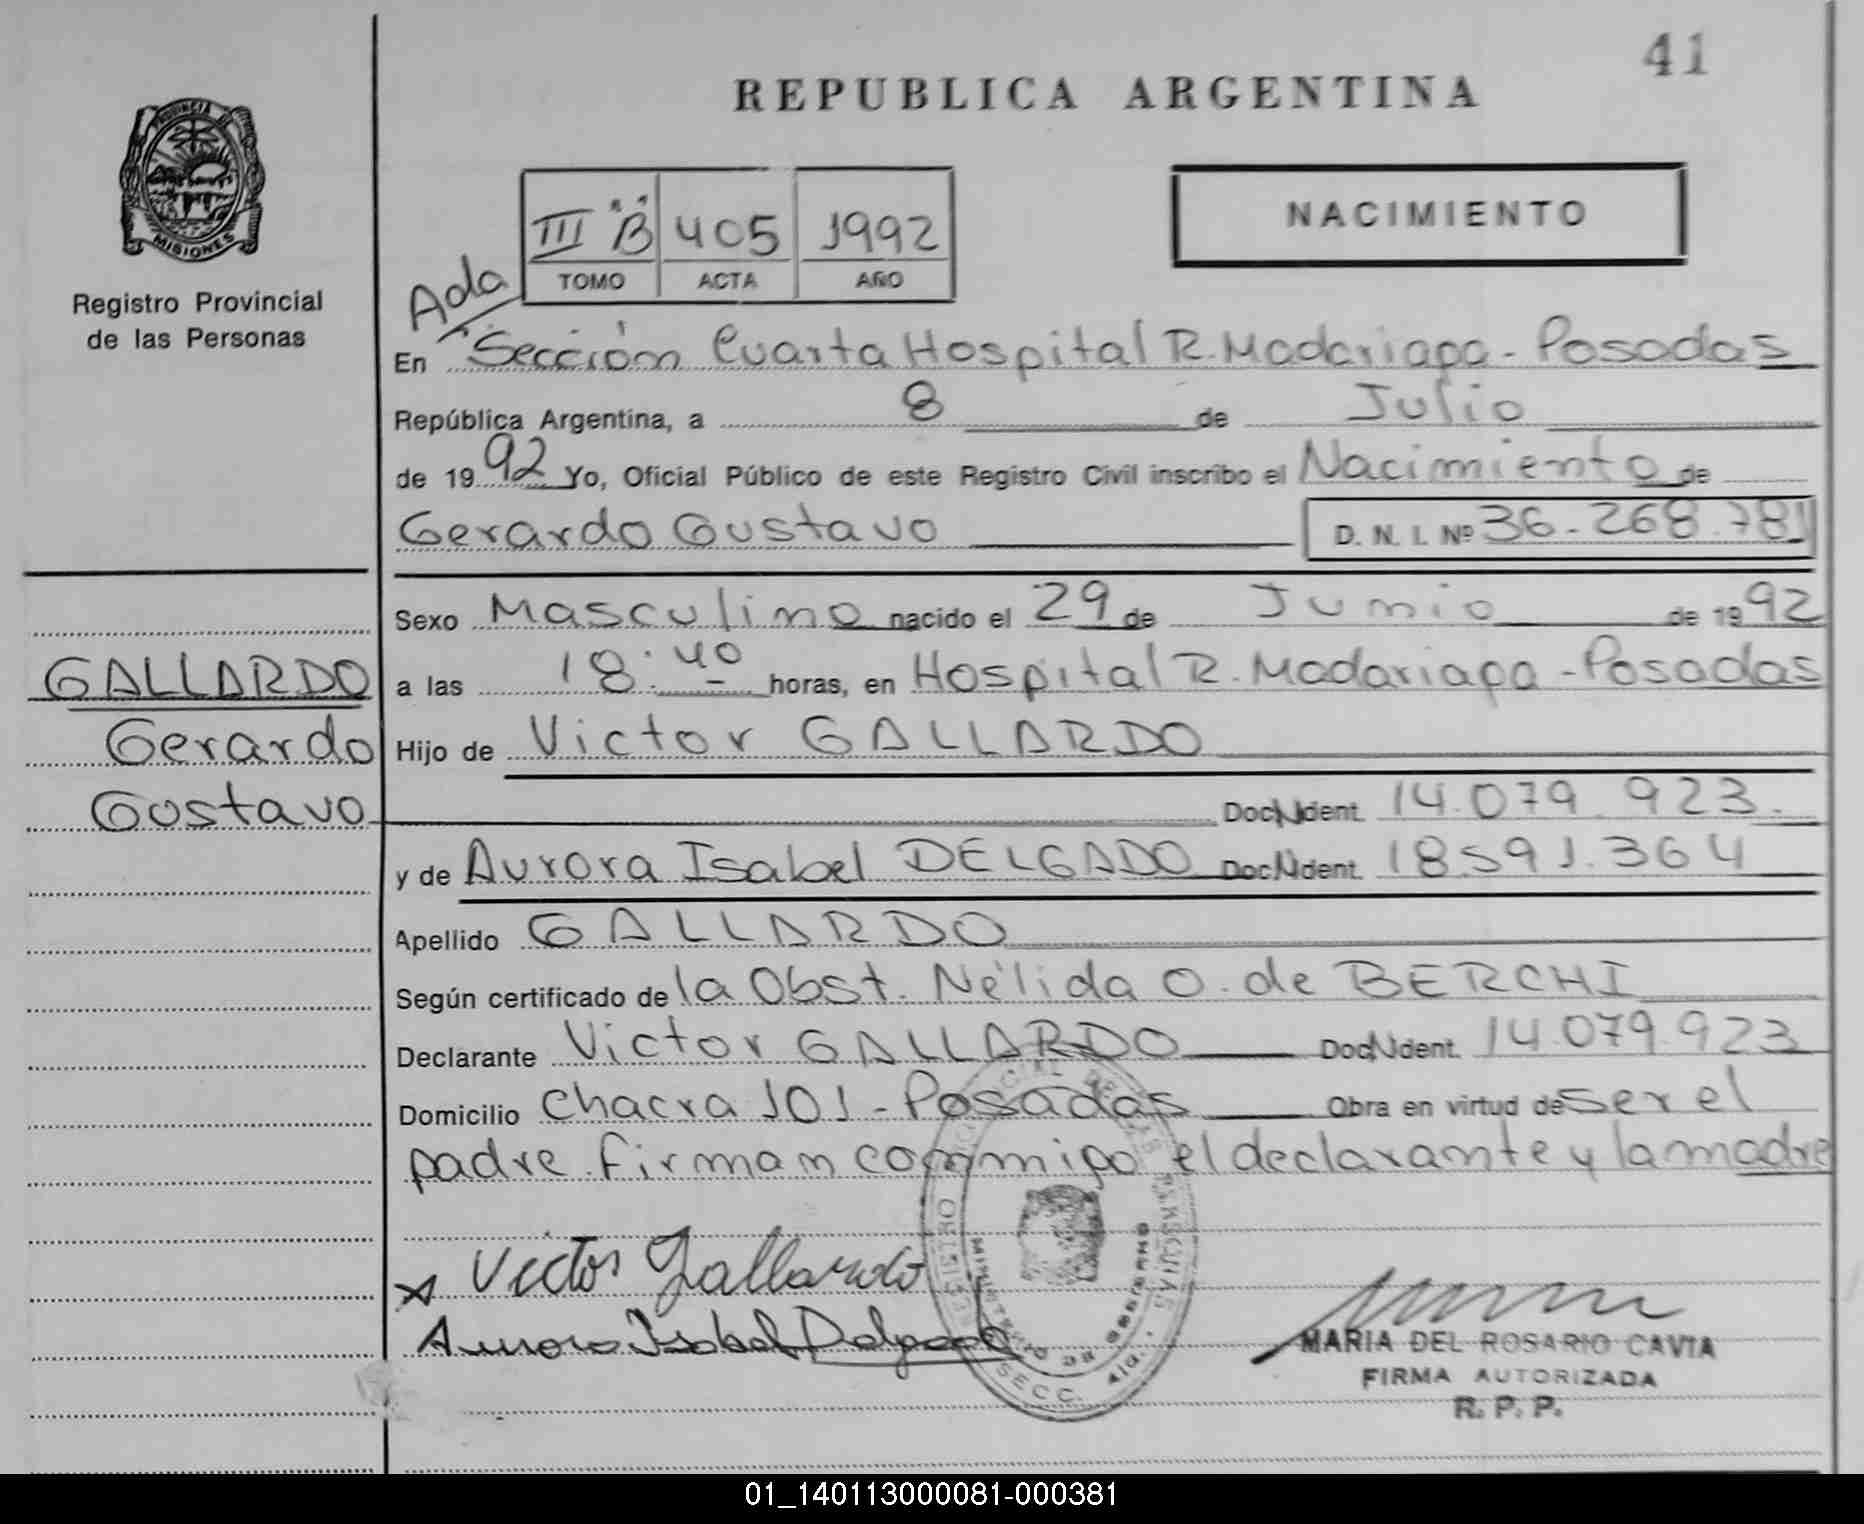 41
REPUBLICA ARGENTINA
PROVINCIA DE
MISIONES
Registro Provincial
de las Personas
III "B" 405 1992
TOMO ACTA AÑO
NACIMIENTO
Ada
En Sección Cuarta Hospital R. Madariaga - Posadas
República Argentina, a 8 de Julio
de 1992 Yo, Oficial Público de este Registro Civil inscribo el Nacimiento de
Gerardo Gustavo D. N. I. Nº 36.268.781
Sexo Masculino nacido el 29 de Junio de 1992
a las 18:40 horas, en Hospital R. Madariaga - Posadas
GALLARDO
Gerardo
Gustavo
Hijo de Victor GALLARDO
Doc. Ident. 14.079.923.
y de Aurora Isabel DELGADO Doc. Ident. 18.591.364
Apellido GALLARDO
Según certificado de la Obst. Nélida O. de BERCHI
Declarante Victor GALLARDO Doc. Ident. 14.079.923
Domicilio Chacra 101 - Posadas Obra en virtud de ser el
padre. Firman conmigo el declarante y la madre
x Victor Gallardo
Aurora Isabel Delgado
SECC. 4ta.
MARIA DEL ROSARIO CAVIA
FIRMA AUTORIZADA
R. P. P.
01_140113000081-000381